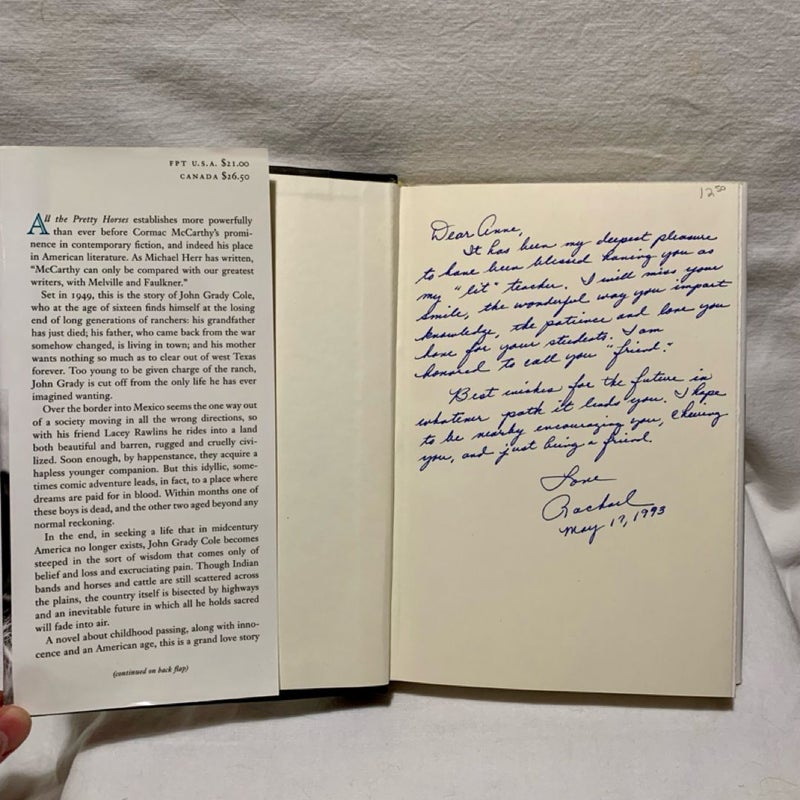 FPT U.S.A. $21.00
CANADA $26.50
All the Pretty Horses establishes more powerfully
than ever before Cormac McCarthy's promi-
nence in contemporary fiction, and indeed his place
in American literature. As Michael Herr has written,
"McCarthy can only be compared with our greatest
writers, with Melville and Faulkner."
Set in 1949, this is the story of John Grady Cole,
who at the age of sixteen finds himself at the losing
end of long generations of ranchers: his grandfather
has just died; his father, who came back from the war
somehow changed, is living in town; and his mother
wants nothing so much as to clear out of west Texas
forever. Too young to be given charge of the ranch,
John Grady is cut off from the only life he has ever
imagined wanting.
Over the border into Mexico seems the one way out
of a society moving in all the wrong directions, so
with his friend Lacey Rawlins he rides into a land
both beautiful and barren, rugged and cruelly civi-
lized. Soon enough, by happenstance, they acquire a
hapless younger companion. But this idyllic, some-
times comic adventure leads, in fact, to a place where
dreams are paid for in blood. Within months one of
these boys is dead, and the other two aged beyond any
normal reckoning.
In the end, in seeking a life that in midcentury
America no longer exists, John Grady Cole becomes
steeped in the sort of wisdom that comes only of
belief and loss and excruciating pain. Though Indian
bands and horses and cattle are still scattered across
the plains, the country itself is bisected by highways
and an inevitable future in which all he holds sacred
will fade into air.
A novel about childhood passing, along with inno-
cence and an American age, this is a grand love story
(continued on back flap)
12 50
Dear Anne,
It has been my deepest pleasure
to have been blessed having you as
my "lit" teacher. I will miss your
smile, the wonderful way you impart
knowledge, the patience and love you
have for your students. I am
honored to call you "friend."
Best wishes for the future in
whatever path it leads you. I hope
to be nearby encouraging you, cheering
you, and just being a friend.
Love
Rachael
May 17, 1993